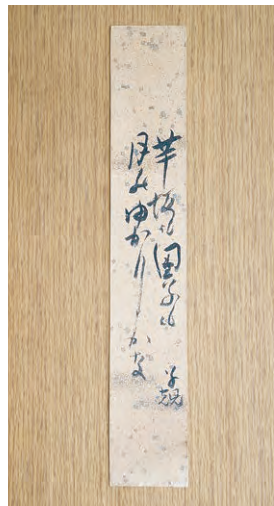 芋坂も團子も
月のゆかりかな
子規